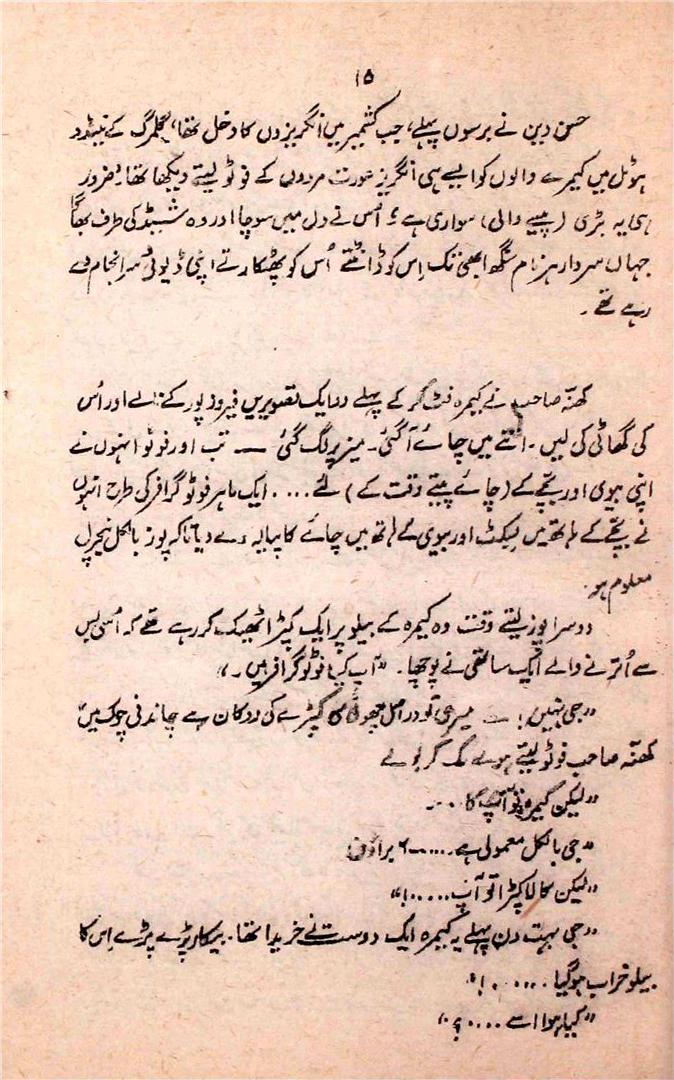 ۱۵
حسن دین نے برسوں پہلے، جب کشمیر میں انگریزوں کا دخل تھا، گلمرگ کے نیڈو
ہوٹل میں کیمرے والوں کو ایسے ہی انگریز عورت مردوں کے فوٹو لیتے دیکھا تھا! ضرور
ہی یہ بڑی (پیسے والی) سواری ہے؛ اُس نے دل میں سوچا اور وہ شیڈ کی طرف بھاگا
جہاں سردار ہرنام سنگھ ابھی تک اِس کو ڈانٹتے اُس کو پھٹکارتے اپنی ڈیوٹی سرانجام دے
رہے تھے۔
کھنّہ صاحب نے کیمرہ فٹ کر کے پہلے دو ایک تصویریں فیروز پور کے نالے اور اُس
کی گھاٹی کی لیں۔ اتنے میں چائے آ گئی۔ میز پر لگ گئی — تب اور فوٹو انہوں نے
اپنی بیوی اور بچّے کے (چائے پیتے وقت کے) لئے .... ایک ماہر فوٹو گرافر کی طرح انہوں
نے بچّے کے ہاتھ میں بسکٹ اور بیوی کے ہاتھ میں چائے کا پیالہ دے دیا تاکہ پوز بالکل نیچرل
معلوم ہو۔
دوسرا پوز لیتے وقت وہ کیمرہ کے بیلو پر ایک کپڑا ٹھیک کر رہے تھے کہ اُسی بس
سے اُترنے والے ایک ساتھی نے پوچھا۔ "آپ کیا فوٹو گرافر ہیں۔"
"جی نہیں! — میری تو دراصل چھوٹی سی کپڑے کی دوکان ہے چاندنی چوک میں"
کھنّہ صاحب فوٹو لیتے ہوئے رُک کر بولے
"لیکن کیمرہ تو آپ کا ...
"جی بالکل معمولی ہے ..... براؤن
"لیکن کالا کپڑا تو آپ .....!"
"جی بہت دن پہلے یہ کیمرہ ایک دوست نے خریدا تھا۔ بیکار پڑے پڑے اِس کا
بیلو خراب ہو گیا ......!"
"کیا ہوا اسے ....؟"